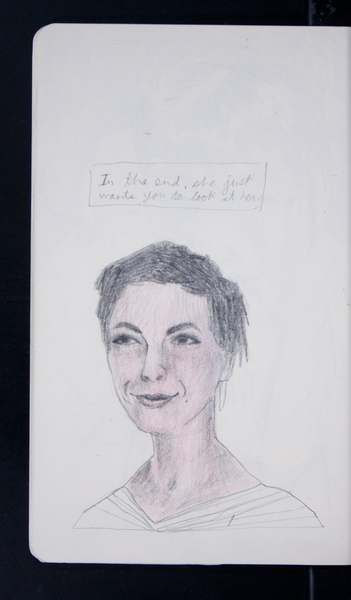 In the end, she just
wants you to look at her.